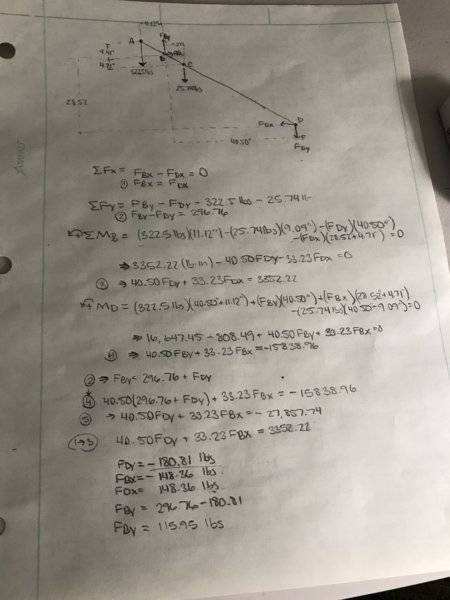 A
FBy
B
C
322.5 lbs
25.74 lbs
4.71"
28.52
40.50"
D
FDx
FDy
ΣFx = FBx - FDx = 0
① FBx = FDx
ΣFy = FBy - FDy - 322.5 lbs - 25.74 lb
② FBy - FDy = 296.76
ΣMB = (322.5 lbs)(11.12") - (25.74 lbs)(9.09") - (FDy)(40.50")
- (FDx)(28.52 + 4.71") = 0
⇒ 3352.22 (lb.in) - 40.50FDy - 33.23FDx = 0
③ ⇒ 40.50FDy + 33.23FDx = 3352.22
ΣMD = (322.5 lb)(40.50" + 11.12") + (FBy)(40.50") + (FBx)(28.52 + 4.71)
- (25.74 lb)(40.50 - 9.09") = 0
⇒ 16,647.45 - 808.49 + 40.50FBy + 33.23FBx = 0
④ ⇒ 40.50FBy + 33.23FBx = -15838.96
② ⇒ FBy = 296.76 + FDy
④ 40.50(296.76 + FDy) + 33.23FBx = -15838.96
⑤ ⇒ 40.50FDy + 33.23FBx = -27,857.74
①→③ 40.50FDy + 33.23FBx = 3352.22
FDy = -180.81 lbs
FBx = -148.36 lbs
FDx = 148.36 lbs
FBy = 296.76 - 180.81
FBy = 115.95 lbs